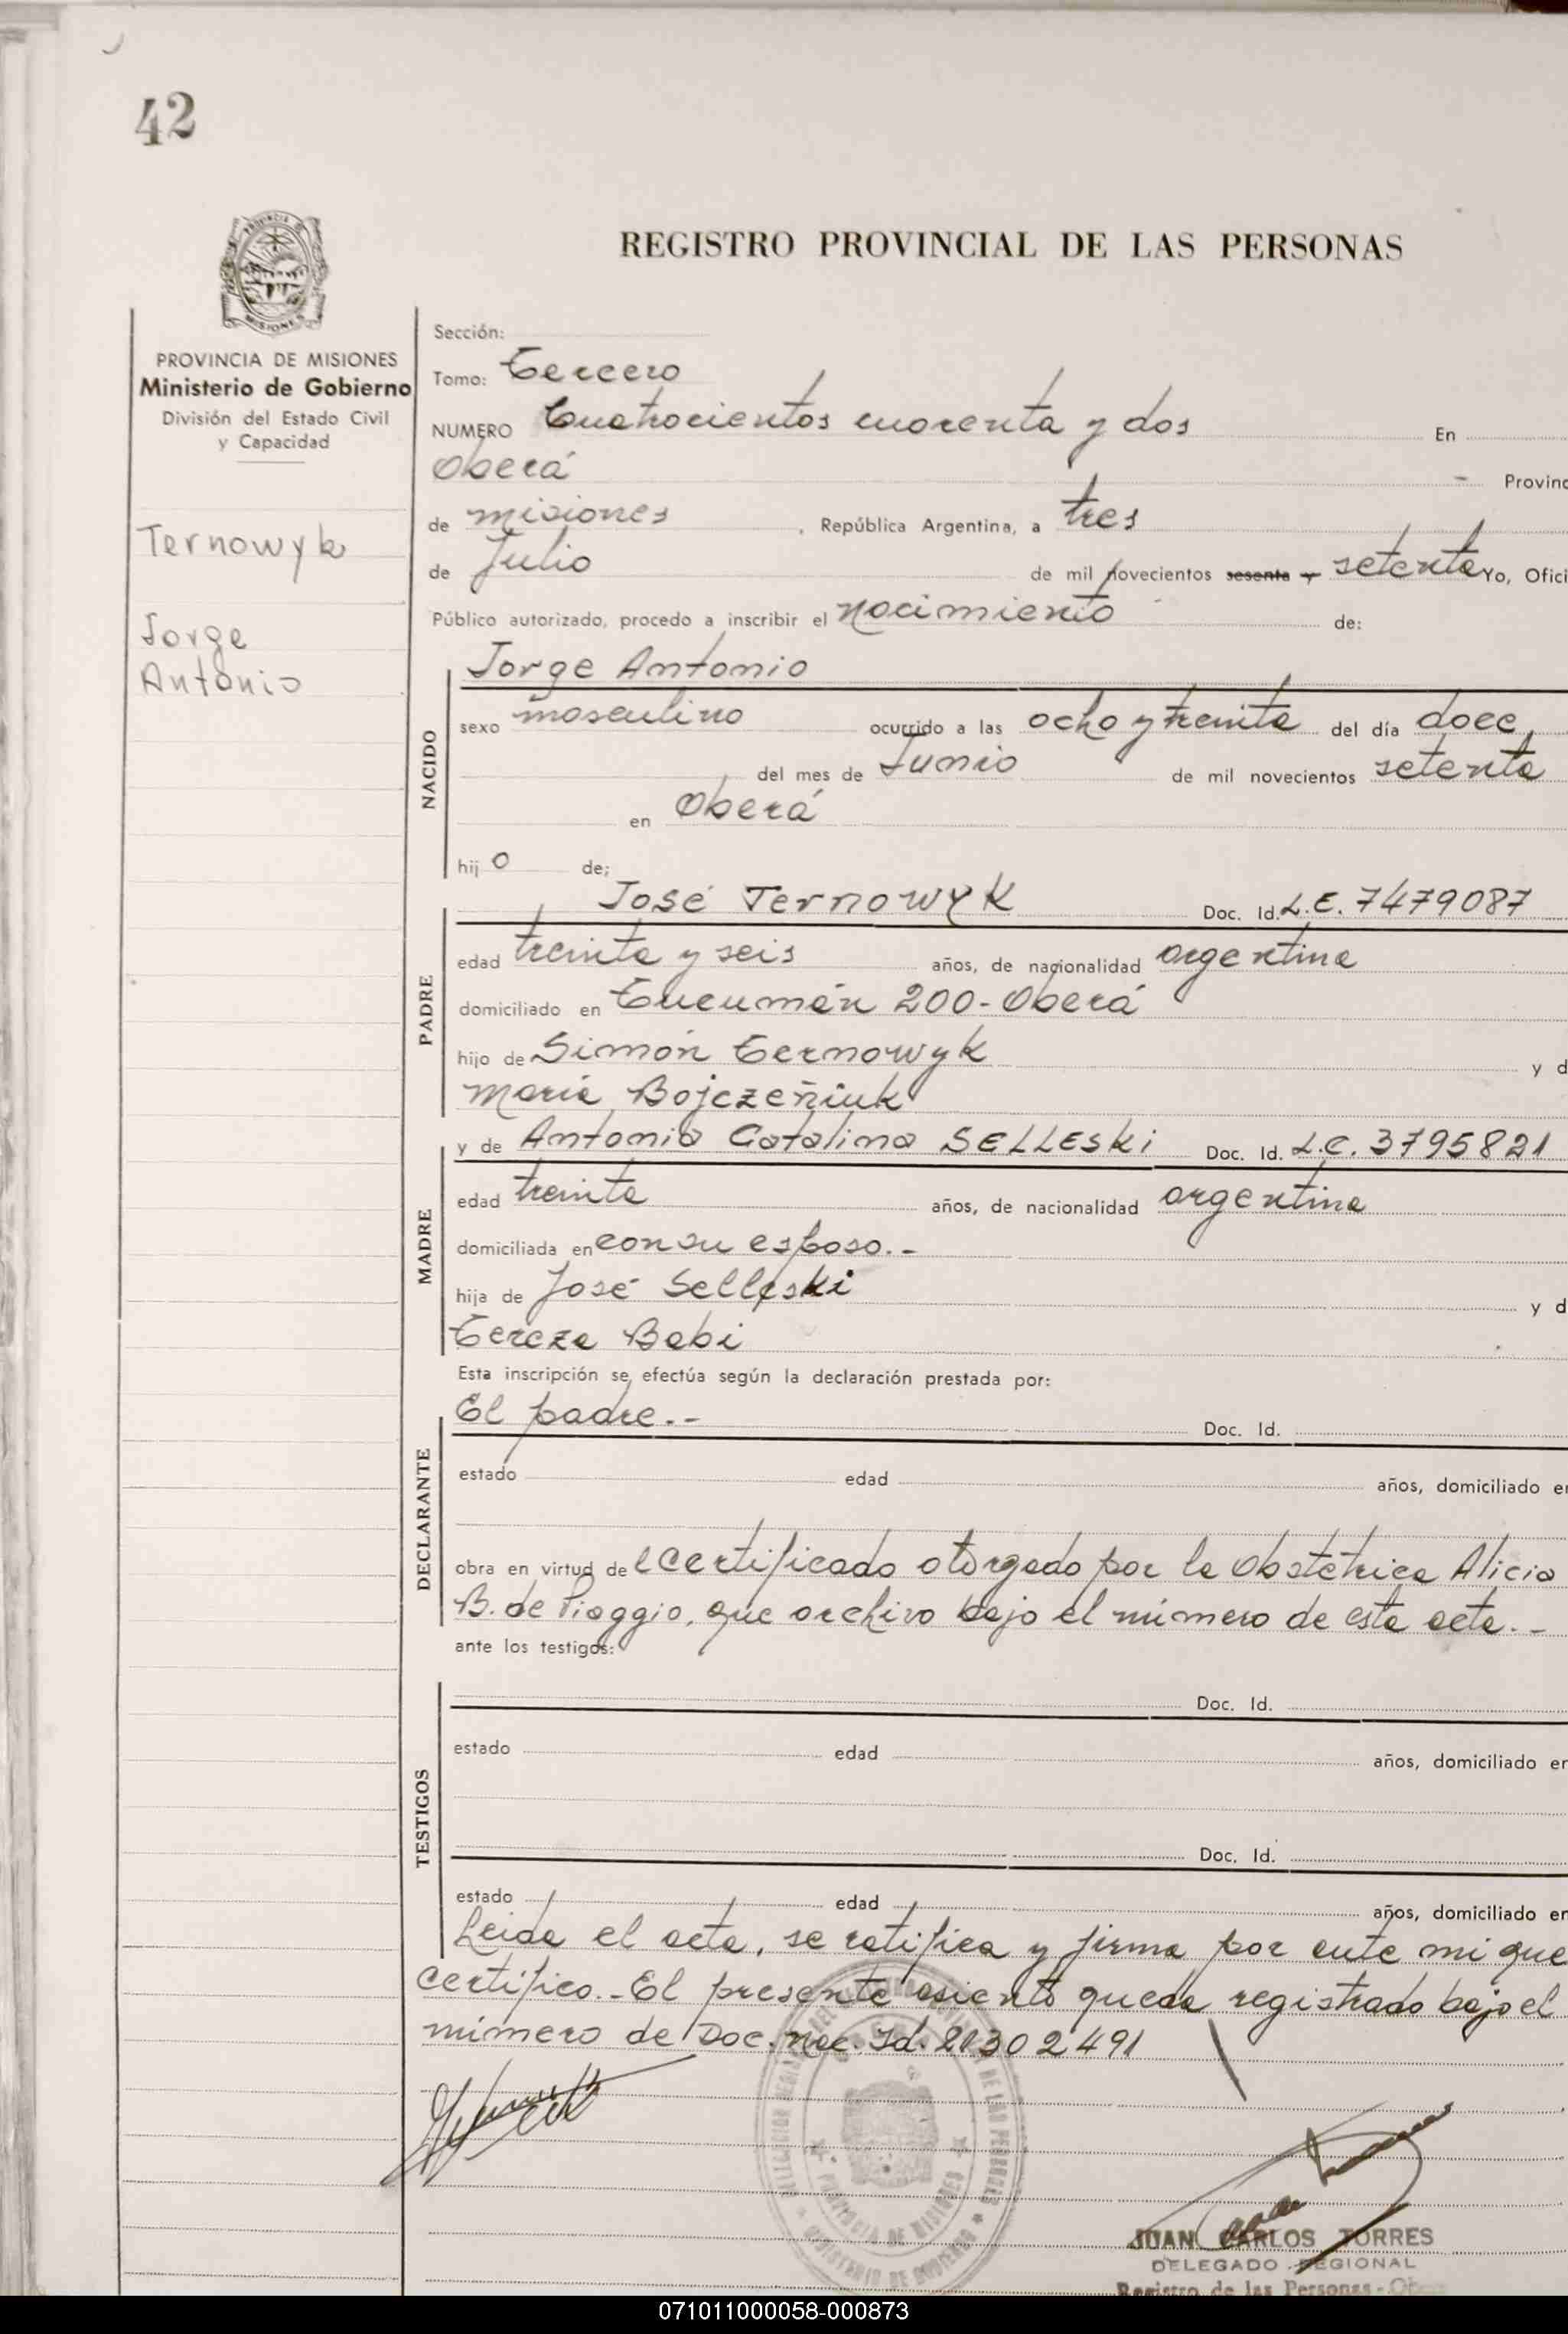 42
REGISTRO PROVINCIAL DE LAS PERSONAS
PROVINCIA DE MISIONES
Ministerio de Gobierno
División del Estado Civil
y Capacidad
Ternowyk
Jorge
Antonio
Sección:
Tomo: Tercero
NUMERO Cuatrocientos cuarenta y dos En
Oberá - Provinc
de misiones, República Argentina, a tres
de Julio de mil novecientos sesenta y setenta Yo, Ofici
Público autorizado, procedo a inscribir el nacimiento de:
NACIDO
Jorge Antonio
sexo masculino ocurrido a las ocho y treinta del día doce
del mes de Junio de mil novecientos setenta
en Oberá
hij o de;
PADRE
José TernowyK Doc. Id. L.E. 7479087
edad treinta y seis años, de nacionalidad argentina
domiciliado en Tucumán 200-Oberá
hijo de Simón Ternowyk y d
María Bojczeñiuk
MADRE
y de Antonia Catalina SELLESki Doc. Id. L.C. 3795821
edad treinta años, de nacionalidad argentina
domiciliada en con su esposo.-
hija de José Selleski y d
Tereza Babi
Esta inscripción se efectúa según la declaración prestada por:
DECLARANTE
El padre.- Doc. Id.
estado edad años, domiciliado en
obra en virtud de l certificado otorgado por la Obstétrica Alicia
B. de Piaggio, que archivo bajo el número de esta acta.-
ante los testigos:
TESTIGOS
Doc. Id.
estado edad años, domiciliado en
Doc. Id.
estado edad años, domiciliado en
Leida el acta, se ratifica y firma por ante mi que
certifico.-El presente asiento queda registrado bajo el
número de Doc. Nac. Id. 21302491
PROVINCIA DE MISIONES
MINISTERIO DE GOBIERNO
JUAN CARLOS TORRES
DELEGADO REGIONAL
Registro de las Personas-
071011000058-000873